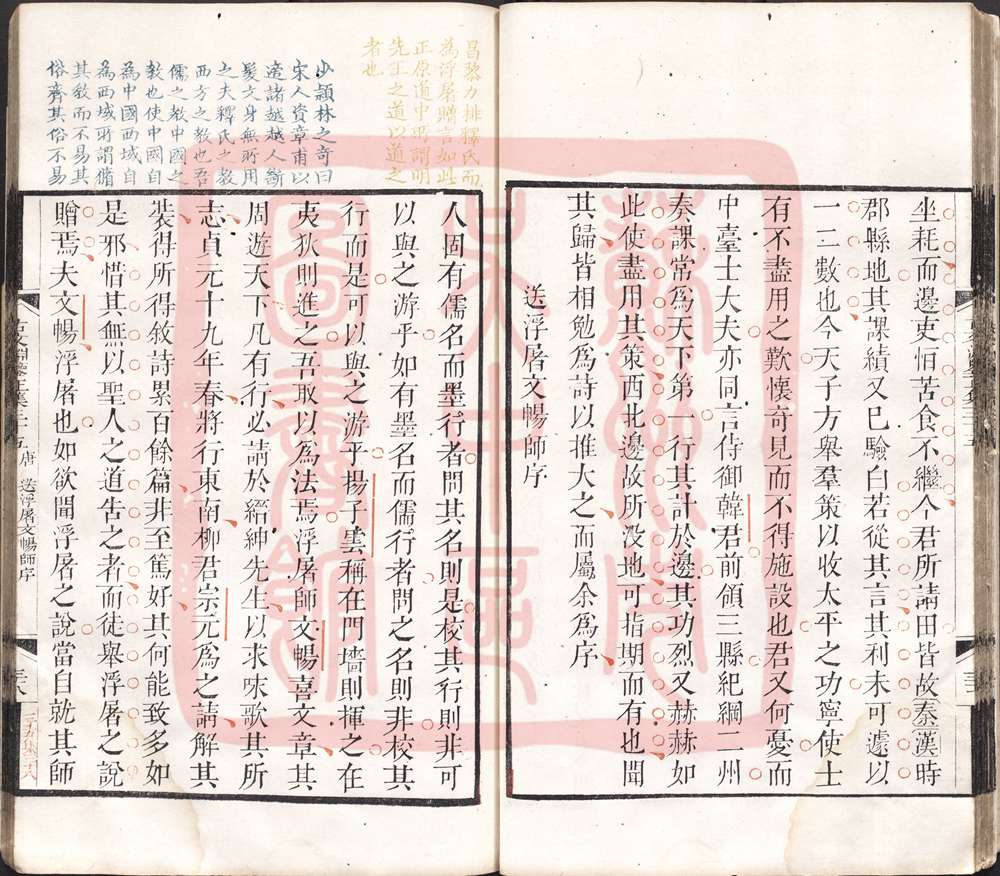 坐耗而邊吏恒苦食不繼今君所請田皆故秦漢時
郡縣地其課績又已驗白若從其言其利未可遽以
一二數也今天子方舉羣策以收太平之功寧使士
有不盡用之歎懷奇見而不得施設也君又何憂而
中臺士大夫亦同言侍御韓君前領三縣紀綱二州
奏課常爲天下第一行其計於邊其功烈又赫赫如
此使盡用其策西北邊故所没地可指期而有也聞
其歸皆相勉爲詩以推大之而屬余爲序
送浮屠文暢師序
昌黎力排釋氏而
為浮屠贈言如此
正原道中所謂明
先王之道以道之
者也
少穎林之奇曰
宋人資章甫以
適諸越越人斷
髮文身無所用
之夫釋氏之教
西方之教也吾
儒之教中國之
教也使中國自
為中國西域自
為西域所謂脩
其教而不易其
俗齊其俗不易
人固有儒名而墨行者問其名則是校其行則非可
以與之游乎如有墨名而儒行者問之名則非校其
行而是可以與之游乎揚子雲稱在門墻則揮之在
夷狄則進之吾取以爲法焉浮屠師文暢喜文章其
周遊天下凡有行必請於縉紳先生以求咏歌其所
志貞元十九年春將行東南柳君宗元爲之請解其
裝得所得敘詩累百餘篇非至篤好其何能致多如
是邪惜其無以聖人之道告之者而徒舉浮屠之說
贈焉夫文暢浮屠也如欲聞浮屠之說當自就其師
唐 送浮屠文暢師序